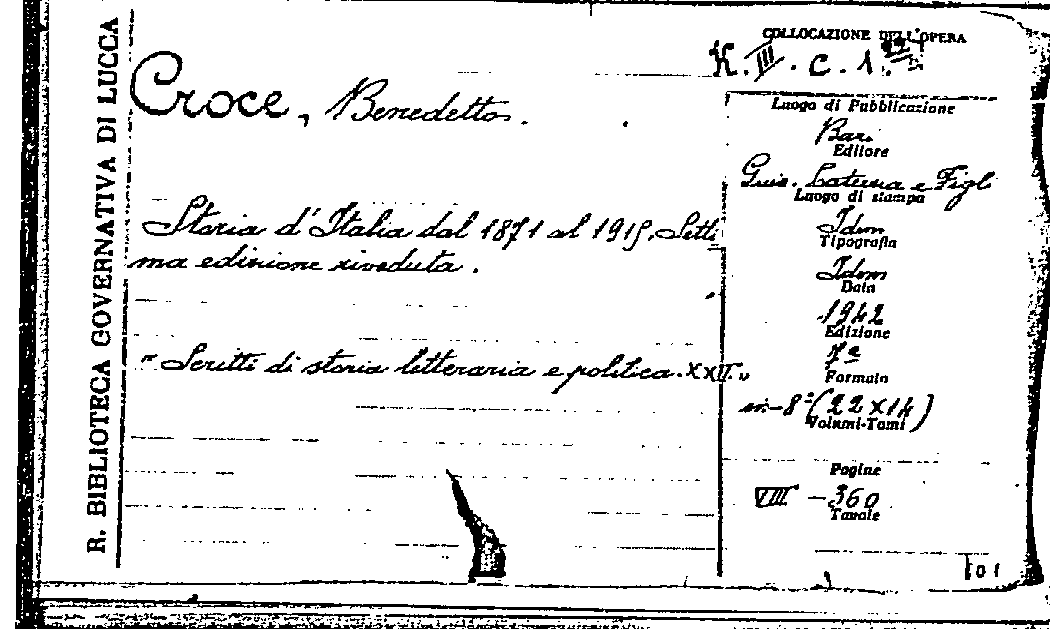 R. BIBLIOTECA GOVERNATIVA DI LUCCA
COLLOCAZIONE DELL'OPERA
K. III. C. 1.
Croce, Benedetto.
Luogo di Pubblicazione
Bari
Editore
Gius. Laterza e Figli
Luogo di stampa
Idem
Tipografia
Idem
Data
1942
Edizione
7ª
Formato
in-8°(22x14)
Volumi-Tomi
Pagine
VIII - 360
Tavole
Storia d'Italia dal 1871 al 1915. Setti
ma edizione riveduta.
"Scritti di storia letteraria e politica. XXII."
101